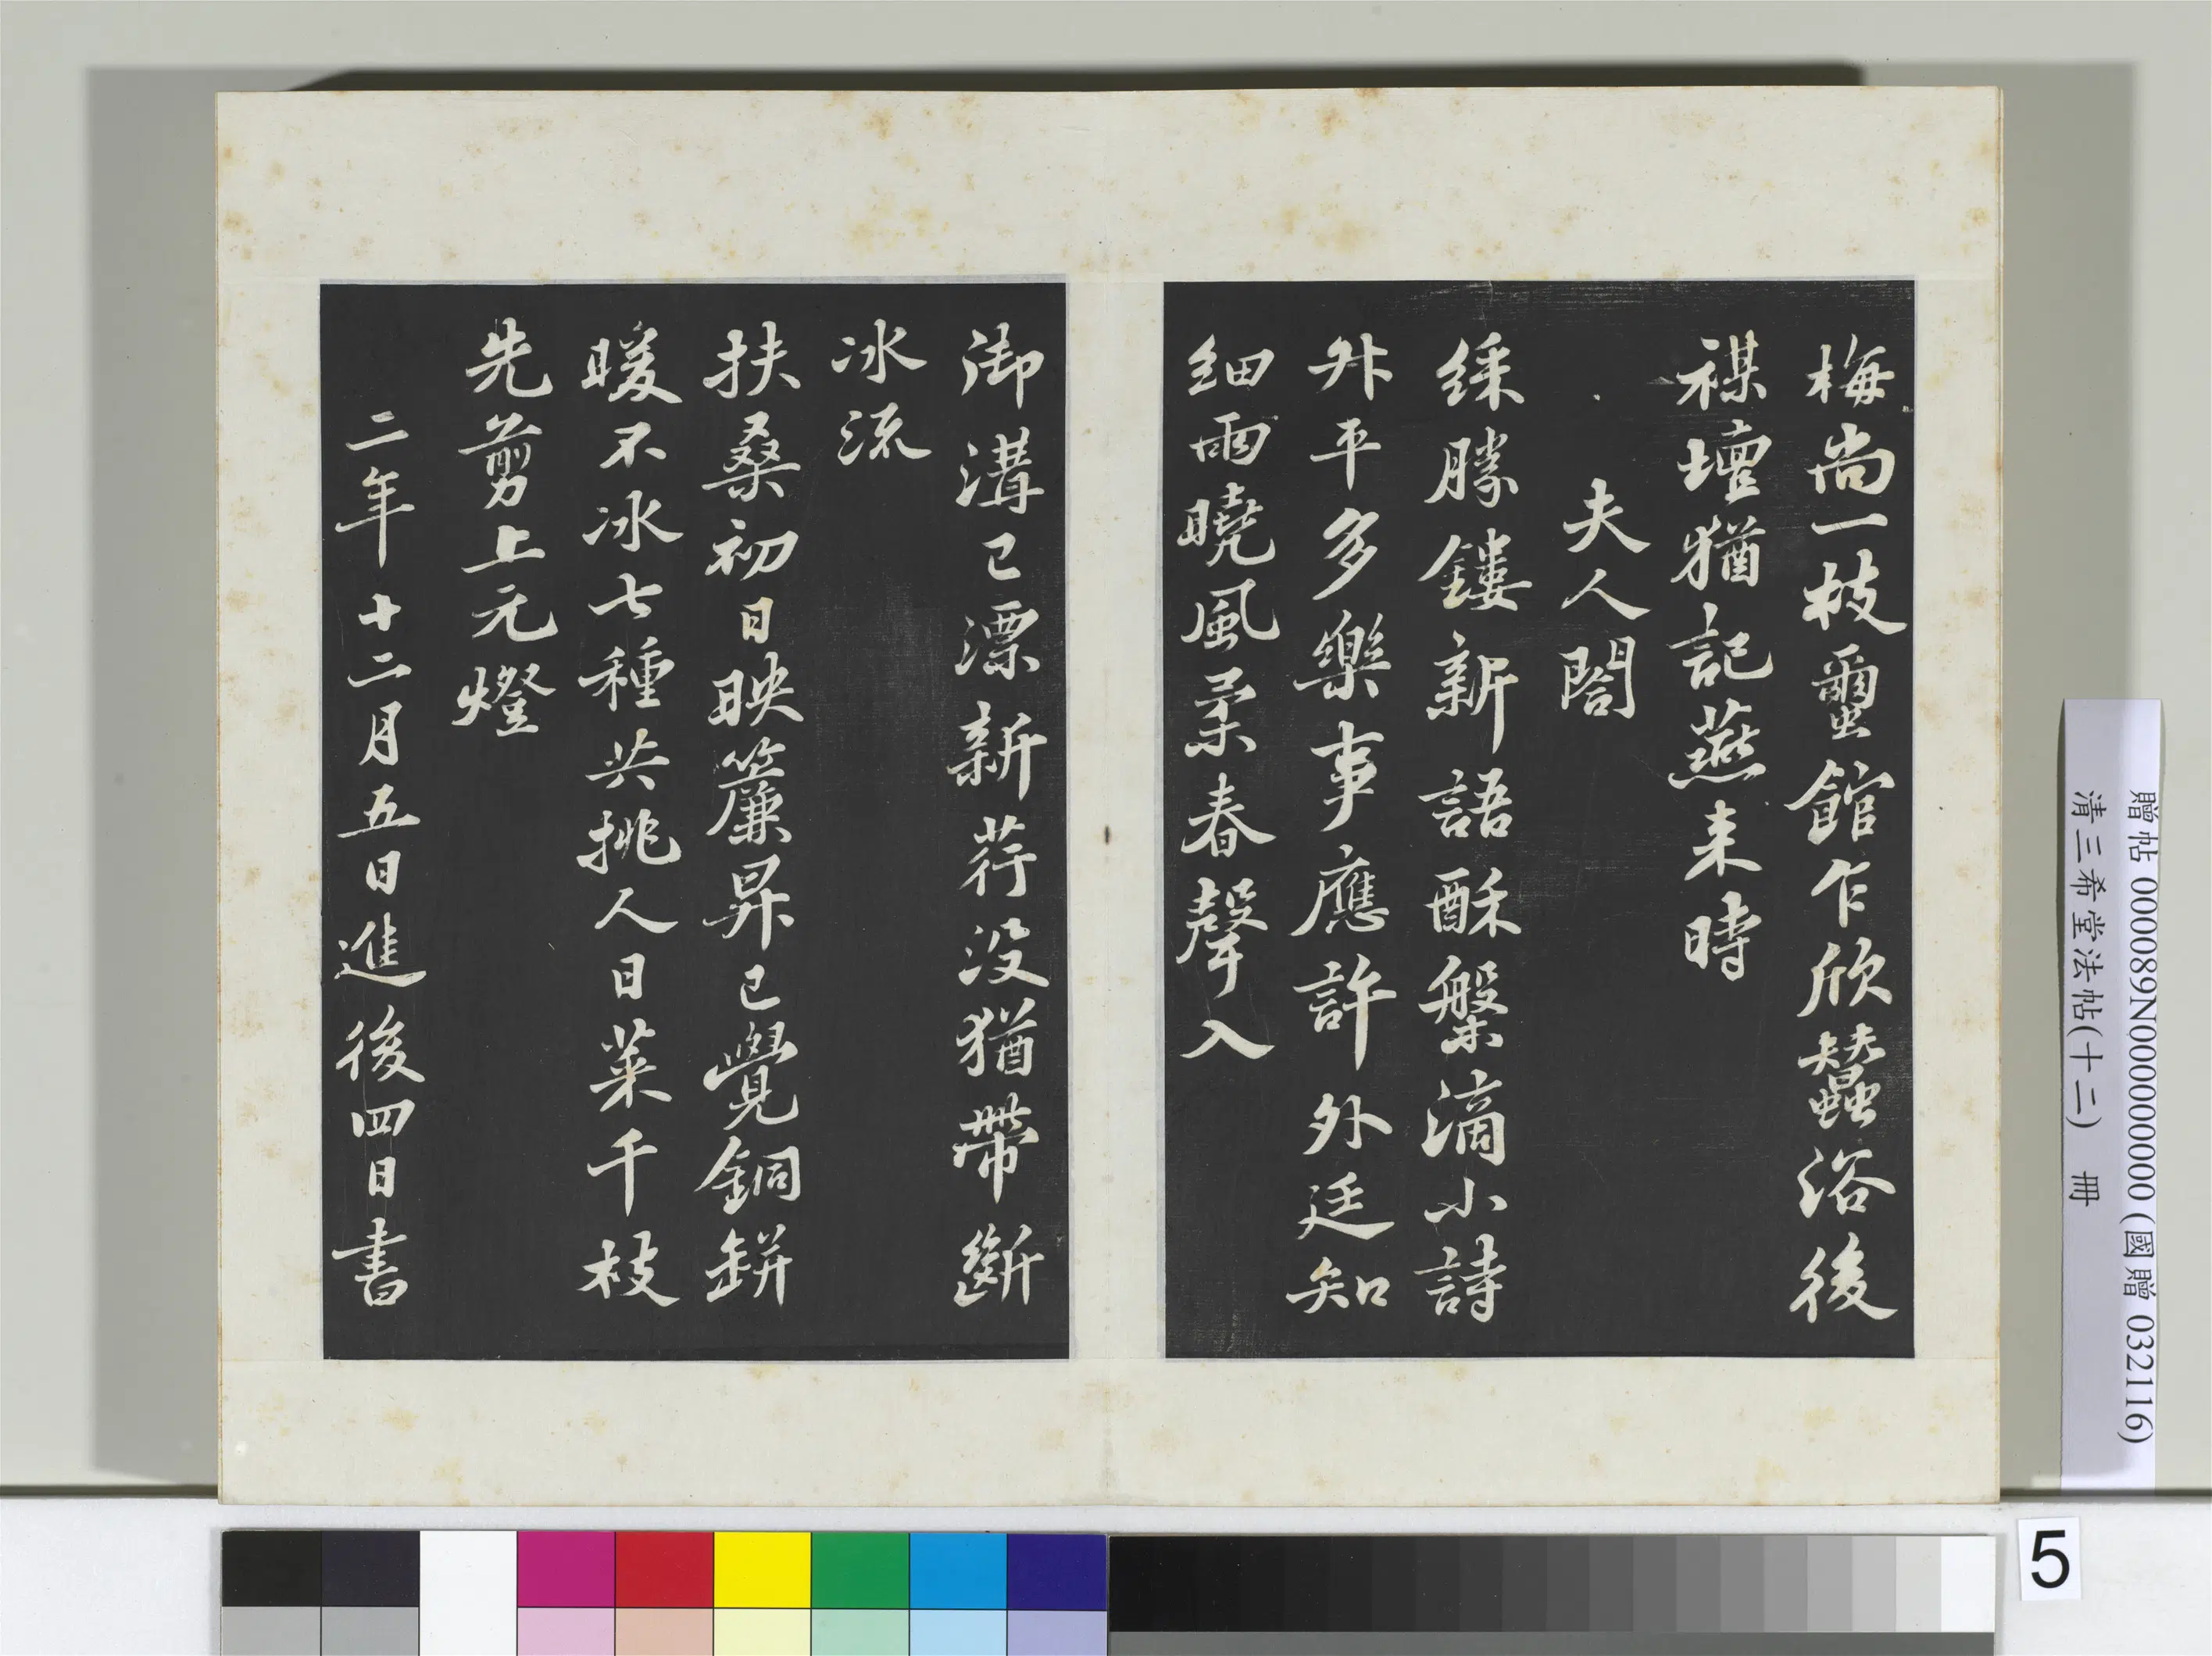 梅尚一枝蠒館乍欣蠶浴後
禖壇猶記燕来時
夫人閤
綵勝鏤新語酥槃滴小詩
升平多樂事應許外廷知
细雨曉風柔春聲入
御溝已漂新荇没猶帶斷
冰流
扶桑初日映簾昇已覺銅缾
暖不冰七種共挑人日菜千枝
先剪上元燈
二年十二月五日進後四日書
贈帖 000089N000000000 (國贈 032116)
清三希堂法帖(十二) 冊
5